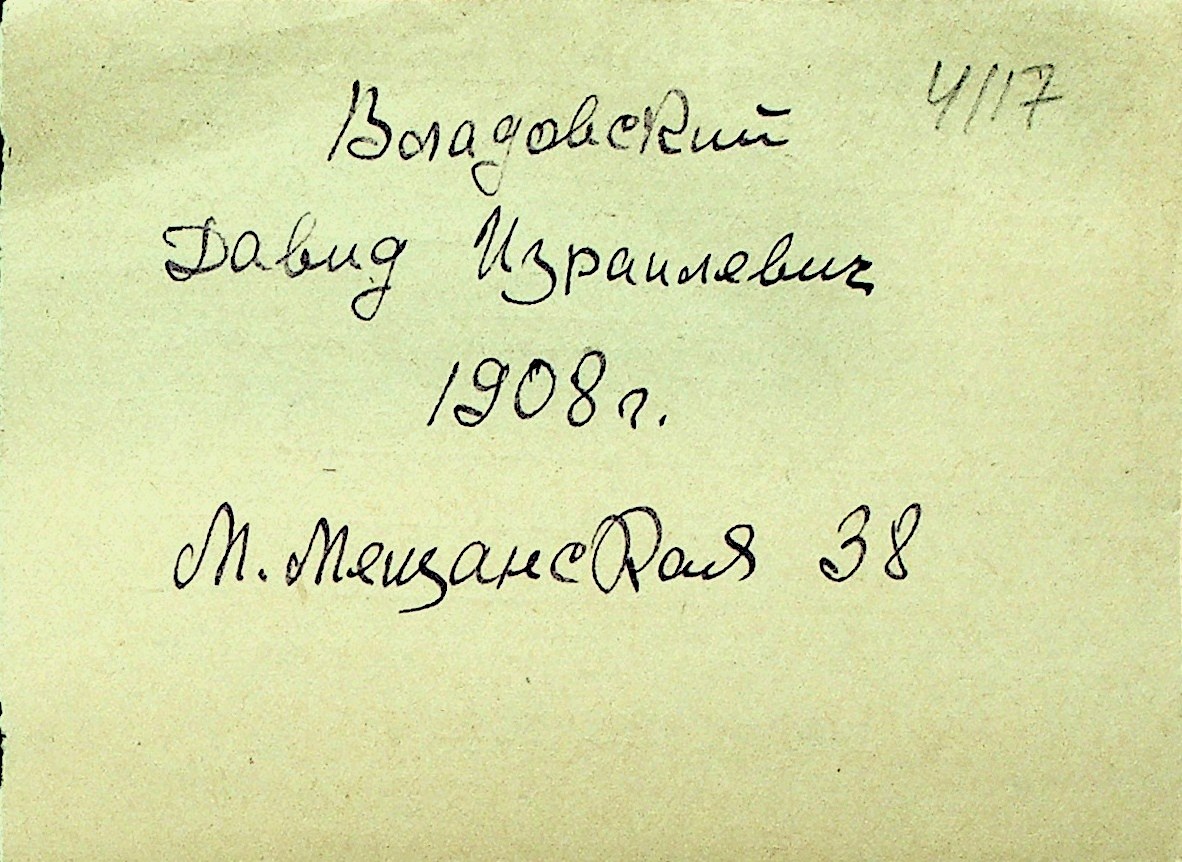 4/17
Владовский
Давид Израилевич
1908 г.
М. Мещанская 38